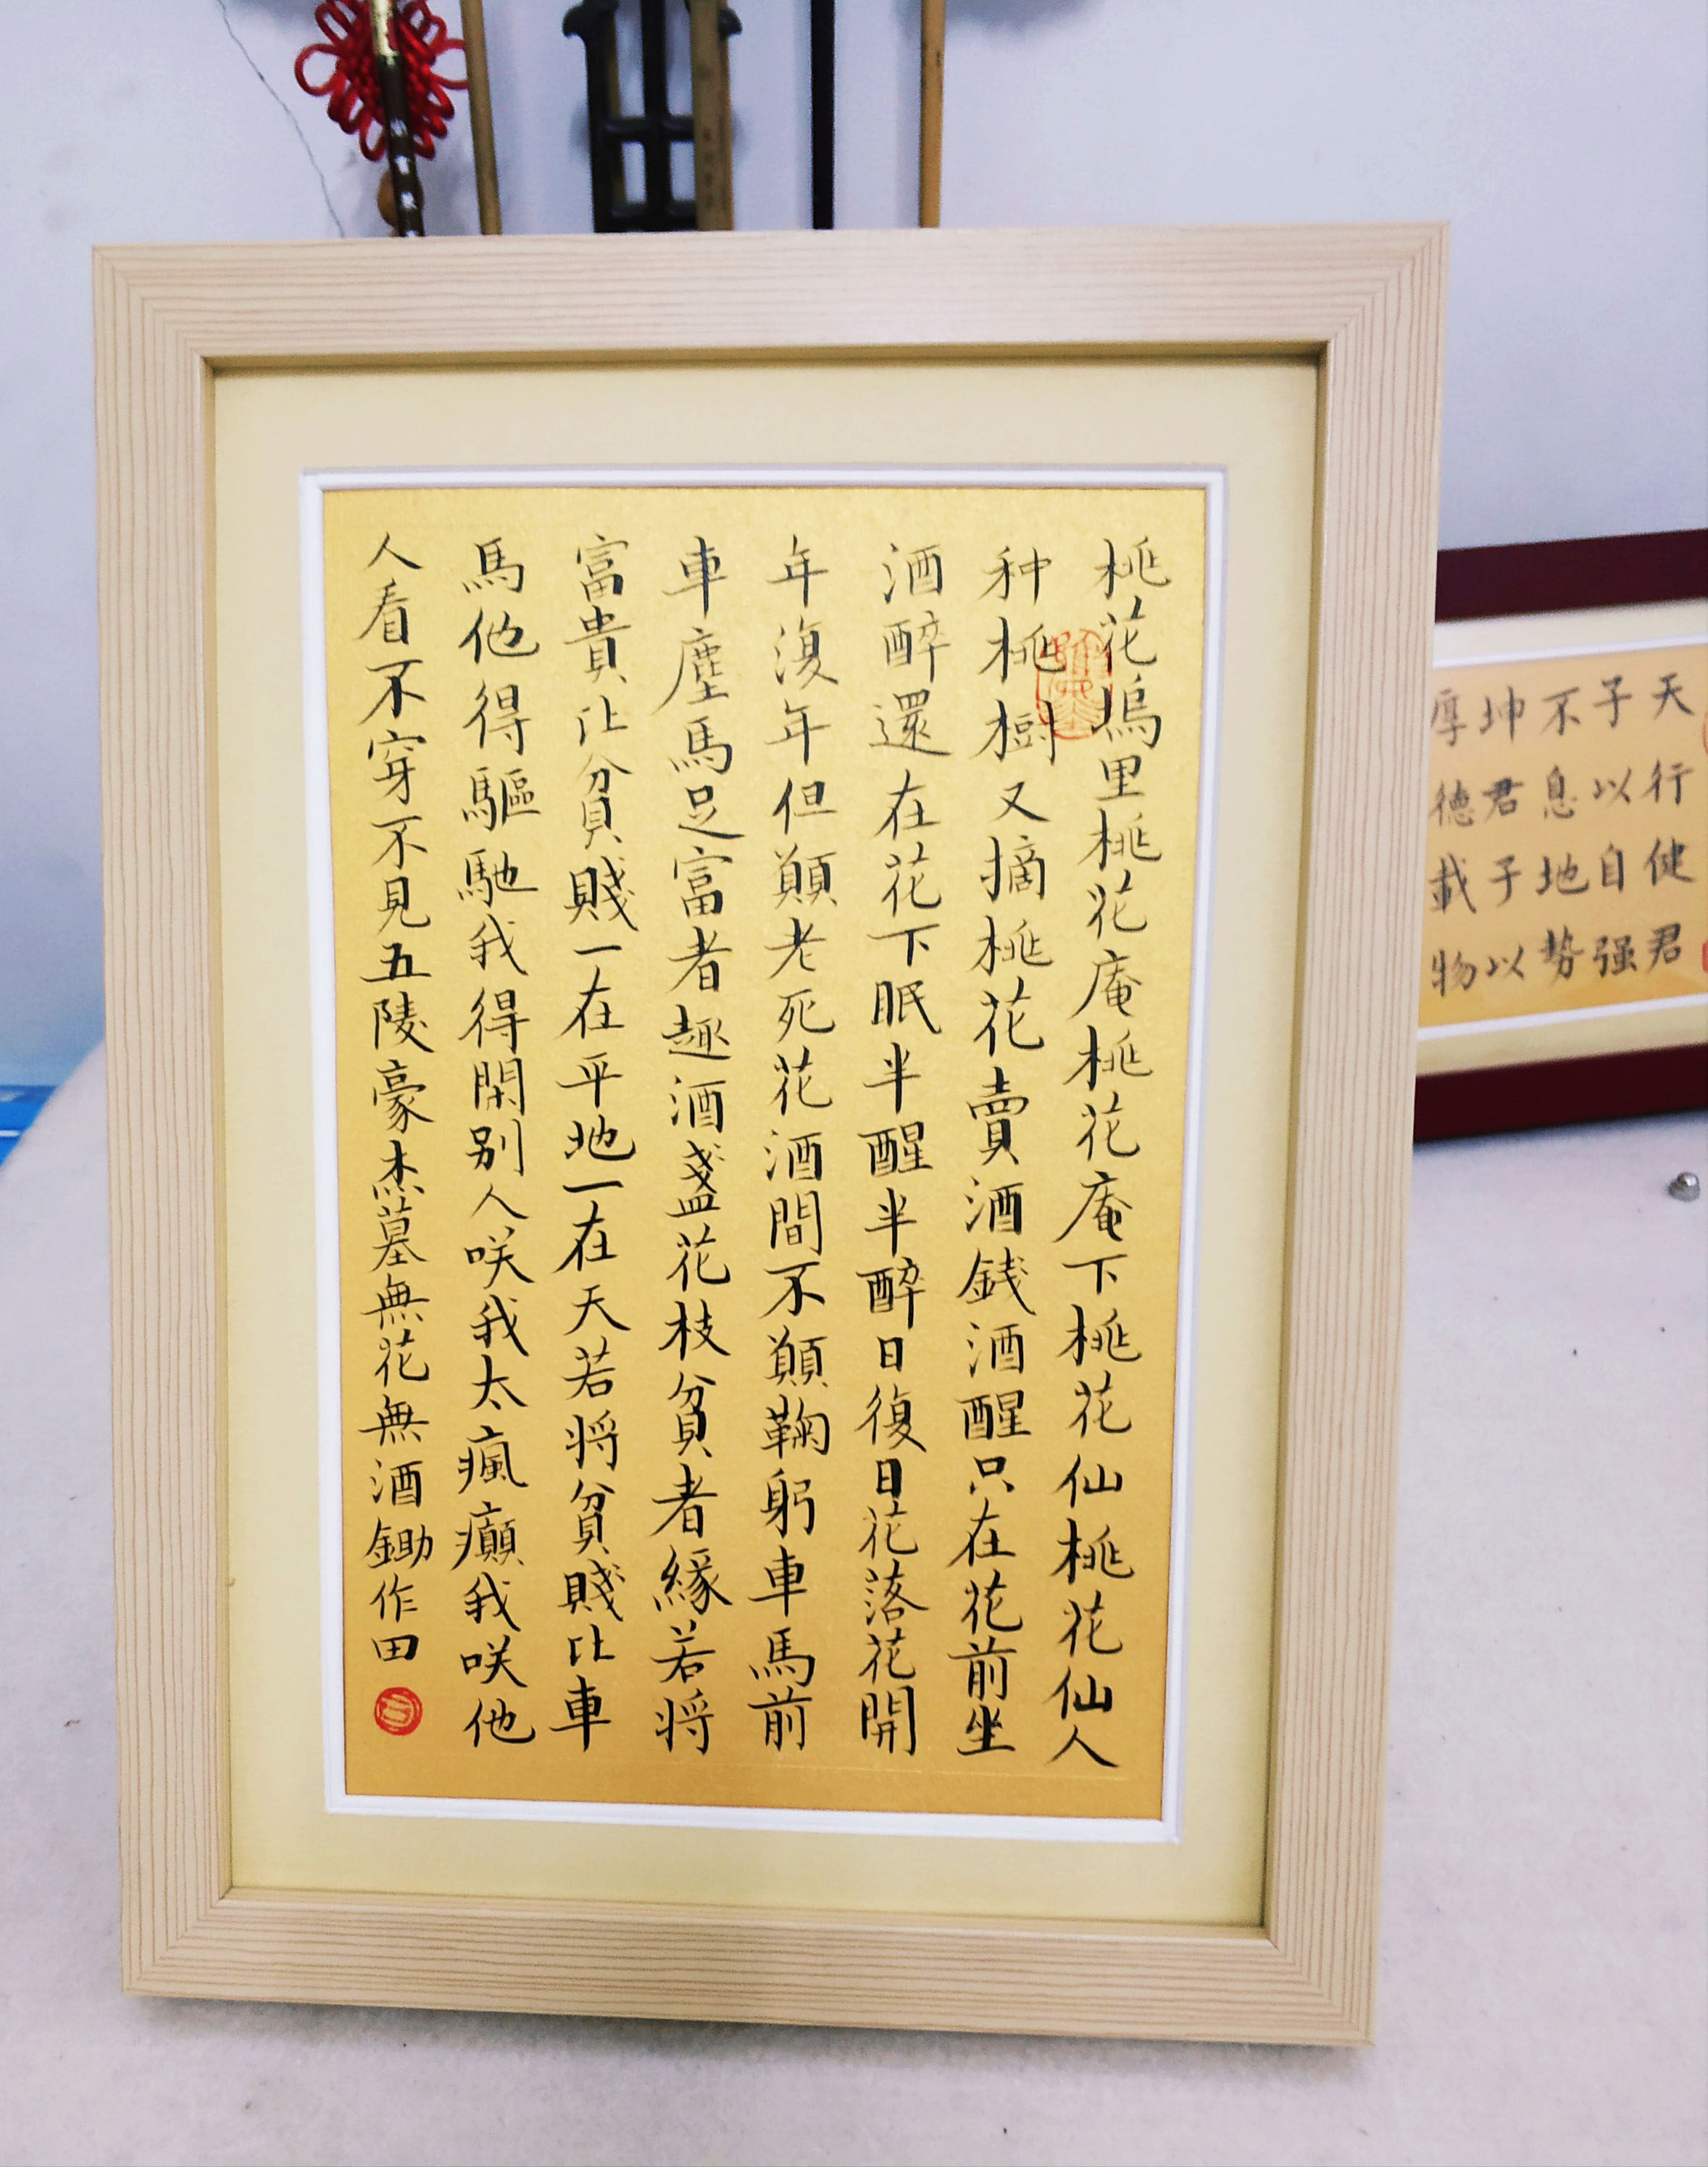 桃花塢里桃花庵桃花庵下桃花仙桃花仙人
种桃樹又摘桃花賣酒錢酒醒只在花前坐
酒醉還在花下眠半醒半醉日復日花落花開
年復年但顛老死花酒間不顛鞠躬車馬前
車塵馬足富者趣酒盞花枝貧者緣若将
富貴比貧賤一在平地一在天若将貧賤比車
馬他得驅馳我得閑别人咲我太瘋癲我咲他
人看不穿不見五陵豪杰墓無花無酒鋤作田
天行健君
子以自强
不息地势
坤君子以
厚德載物